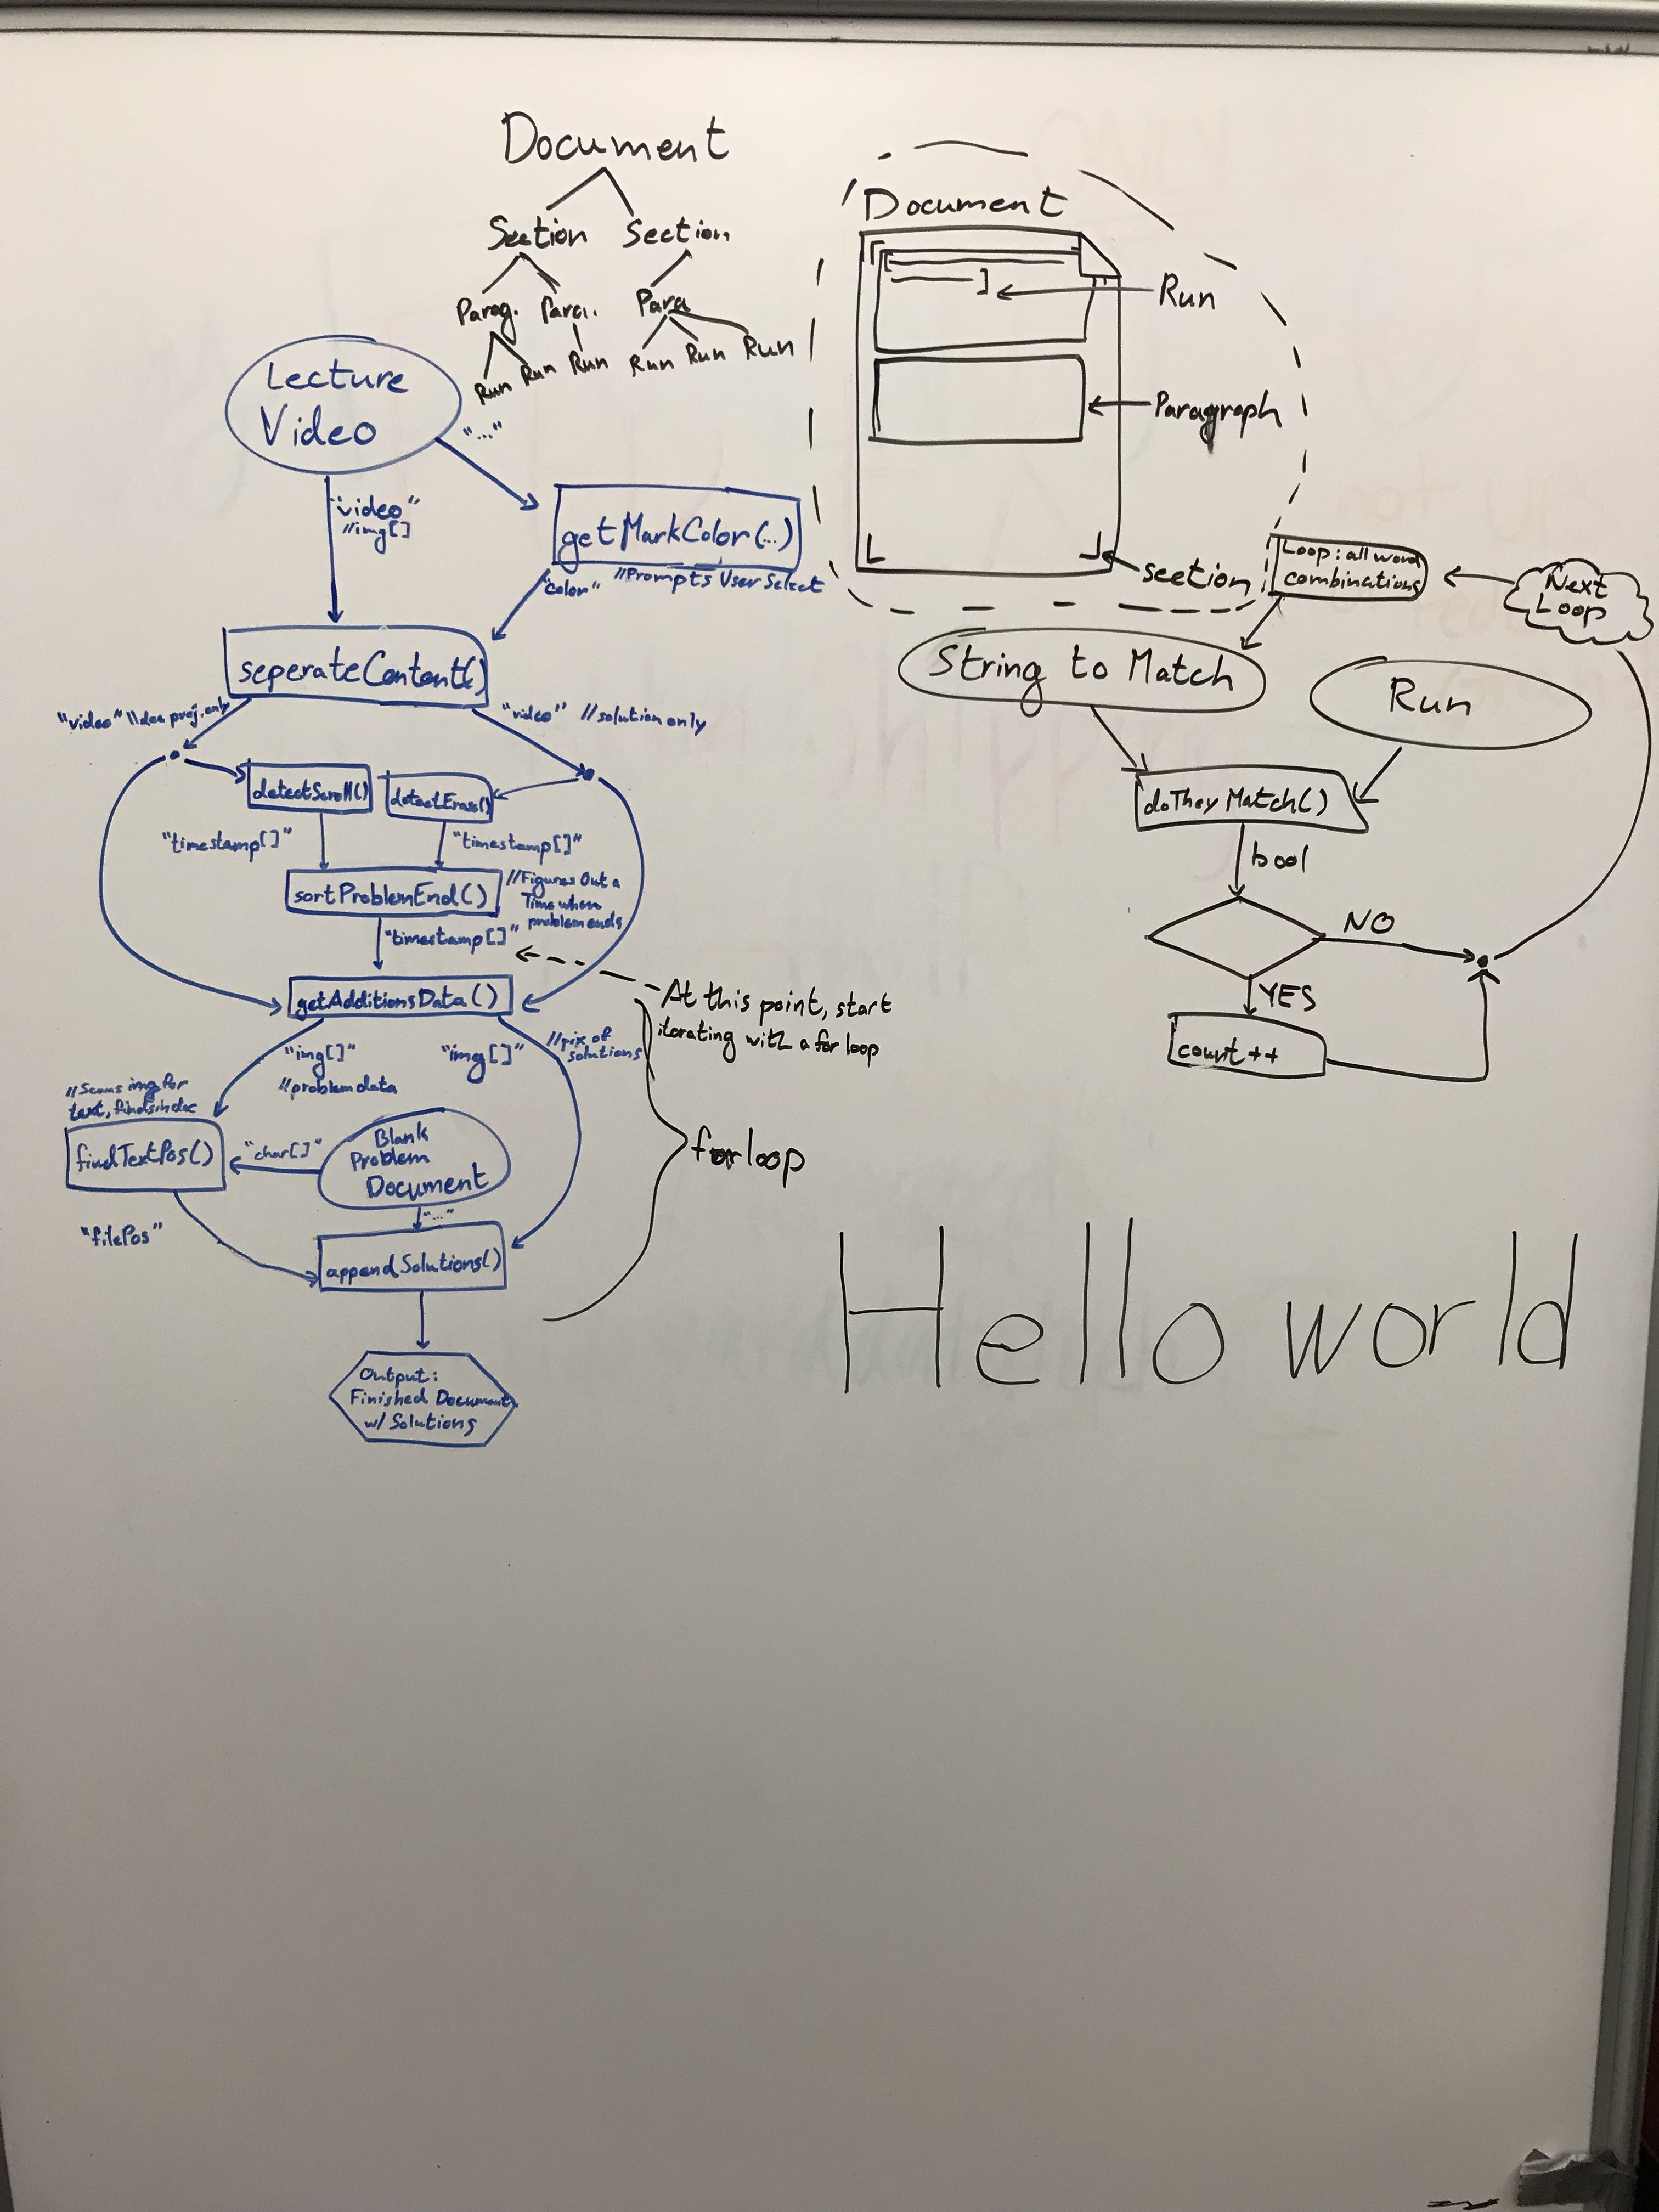 Document
Section Section
Parag. Para. Para
Run Run Run Run Run Run
Document
Run
Paragraph
section
Lecture
Video
"..."
"video"
//img[]
getMarkColor(...)
"color" //Prompts User Select
seperateContent()
"video" \\doc proj. only
"video" //solution only
detectScroll()
detectErase()
"timestamp[]"
"timestamp[]"
sortProblemEnd()
//Figures Out a
Time when
problem ends
"timestamp[]"
At this point, start
iterating with a for loop
getAdditionsData()
"img[]"
//problem data
"img[]"
//pix of
solutions
//Scans img for
text, finds in doc
findTextPos()
"char[]"
Blank
Problem
Document
"..."
"filePos"
appendSolutions()
for loop
Output:
Finished Document
w/ Solutions
Loop: all word
combinations
Next
Loop
String to Match
Run
doTheyMatch()
bool
NO
YES
count++
Hello world